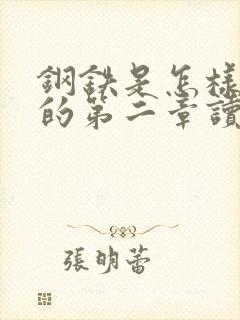 鋼鉄是怎樣
的第二章讀
張明蕾